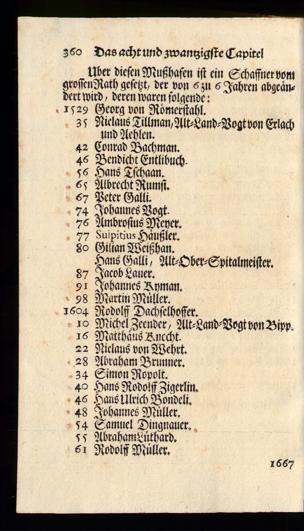 360 Das acht und zwantzigste Capitel
Uber diesen Mußhafen ist ein Schaffner vom
grossen Rath gesetzt, der von 6 zu 6 Jahren abgeän-
dert wird, deren waren folgende:
1529 Georg von Römerstahl.
35 Niclaus Tillman, Alt-Land-Vogt von Erlach
und Aehlen.
42 Conrad Bachman.
46 Bendicht Entlibuch.
56 Hans Tschaan.
65 Albrecht Rumst.
67 Peter Galli.
74 Johannes Vogt.
76 Ambrosius Meyer.
77 Sulpitius Haußler.
80 Gilian Weißhan.
Hans Galli, Alt-Ober-Spitalmeister.
87 Jacob Lauer.
91 Johannes Kyman.
98 Martin Müller.
1604 Rodolff Dachselhoffer.
10 Michel Zeender, Alt-Land-Vogt von Bipp.
16 Matthäus Knecht.
22 Niclaus von Wehrt.
28 Abraham Brunner.
34 Simon Ropolt.
40 Hans Rodolff Zigerlin.
46 Hans Ulrich Bondeli.
48 Johannes Müller.
54 Samuel Dingnauer.
55 Abraham Lüthard.
61 Rodolff Müller.
1667